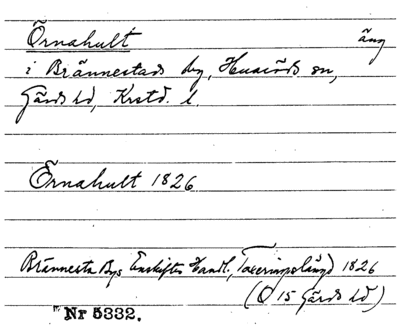 Örnahult äng
i Brännestads by, Huaröds sn,
Gärds hd, Krstd. l.
Örnahult 1826
Brännesta Bys Enskiftes Handl., Taxeringslängd 1826
(O 15 Gärds hd)
Nr 5332.